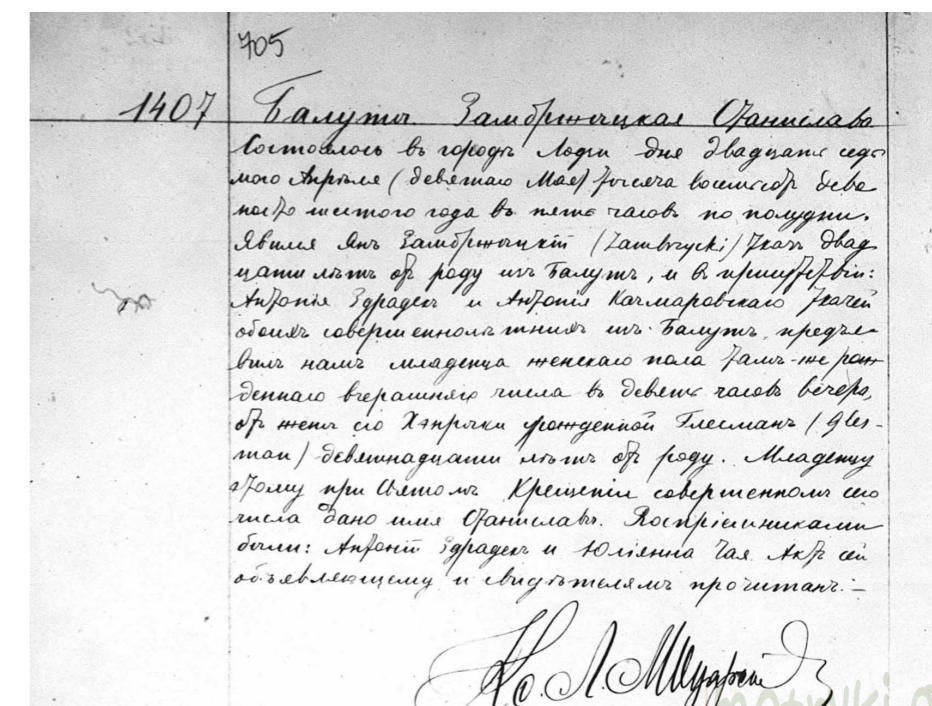 705
1407 Балуты. Замбржицкая Станислава
Состоялось въ городѣ Лодзи дня двадцать седь
мого Апрѣля (девятаго Мая) тысяча восемьсотъ дева
носто шестого года въ пять часовъ по полудни.
Явился Янъ Замбржицкій (Zambrzycki) ткачъ двад
цати лѣтъ отъ роду изъ Балутъ, и въ присутствіи:
Антонія Здрадекъ и Антонія Качмаровскаго ткачей
обоихъ совершеннолѣтнихъ изъ Балутъ, предъя
вилъ намъ младенца женскаго пола тамъ-же рож
деннаго вчерашняго числа въ девять часовъ вечера,
отъ жены его Хэнрыки урожденной Глесманъ (Gles-
man) девятнадцати лѣтъ отъ роду. Младенцу
этому при Святомъ Крещеніи совершенномъ сего
числа дано имя Станислава. Воспріемниками
были: Антоній Здрадекъ и Юліянна Чая. Актъ сей
объявляющему и свидѣтелямъ прочитанъ:—
Кс. Л.